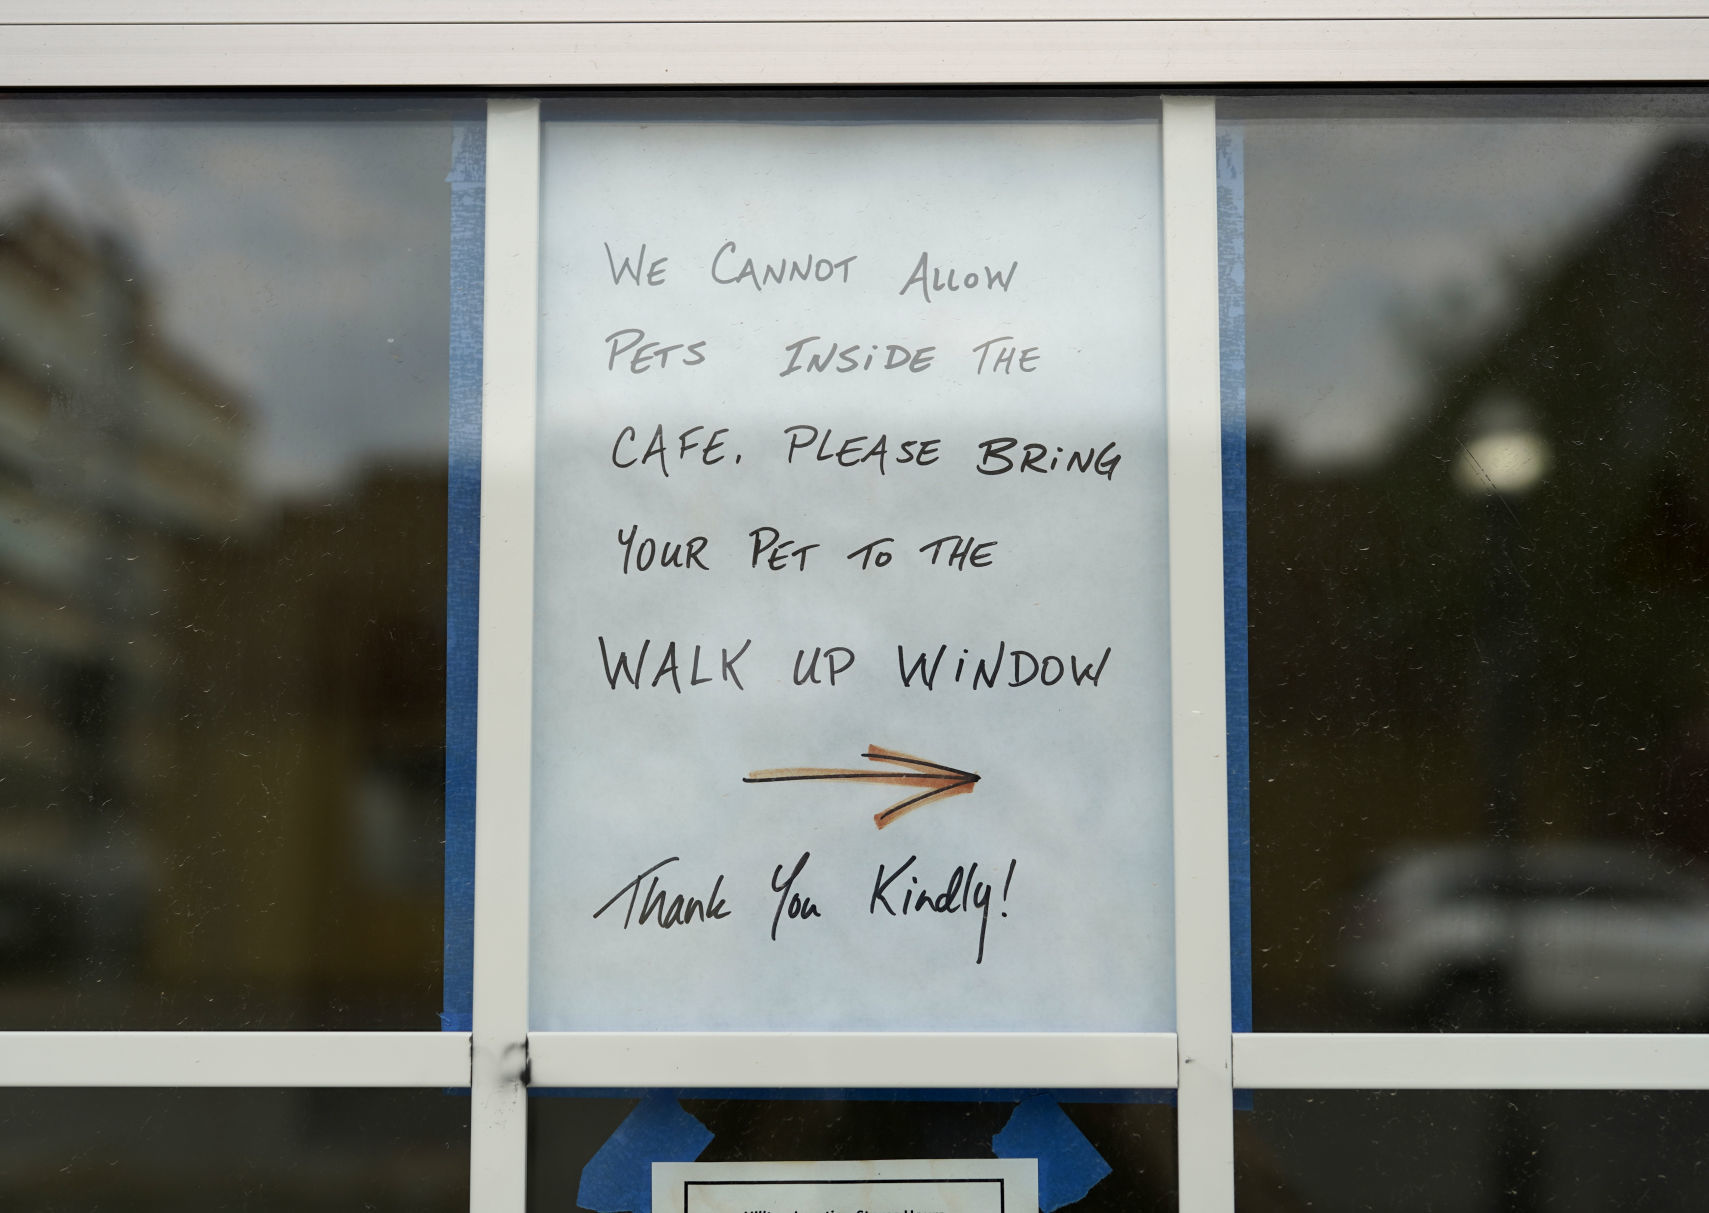 WE CANNOT ALLOW
PETS INSiDE THE
CAFE. PLEASE BRiNG
YOUR PET TO THE
WALK UP WiNDOW
Thank You Kindly!